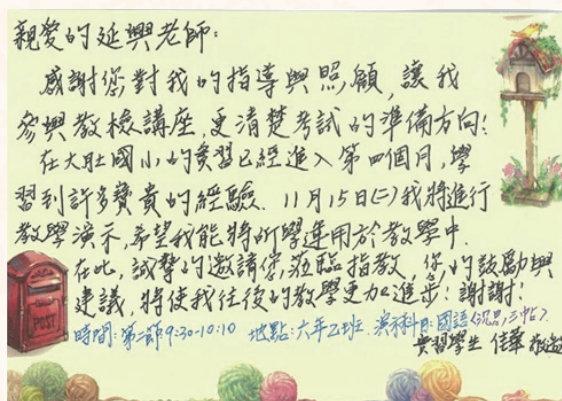 親愛的延興老師:
感謝您對我的指導與照顧,讓我
參與教檢講座,更清楚考試的準備方向!
在大肚國小的實習已經進入第四個月,學
習到許多寶貴的經驗. 11月15日(二)我將進行
教學演示,希望我能將所學運用於教學中.
在此,誠摯的邀請您,蒞臨指教,您的鼓勵與
建議,將使我往後的教學更加進步!謝謝!
時間:第二節9:30-10:10 地點:六年乙班. 演示科目:國語
實習學生 佳華 敬邀
POST